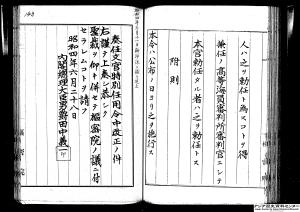 人ハ之ヲ勅任ト為スコトヲ得
兼任ノ高等海員審判所審判官ニシテ
本官勅任タル者ハ之ヲ勅任トス
附則
本令ハ公布ノ日ヨリ之ヲ施行ス
奏任文官特別任用令中改正ノ件
右謹テ上奏シ恭シク
聖裁ヲ仰キ併セテ樞密院ノ議ニ付
セラレムコトヲ請フ
昭和四年六月二十八日
内閣總理大臣男爵田中義一